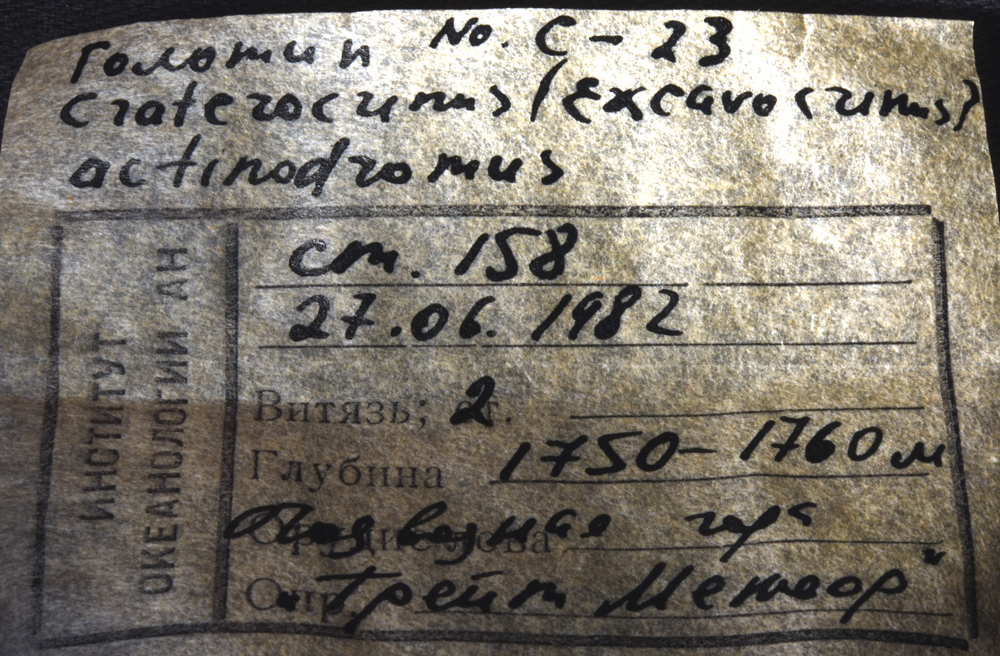 Голотип No. C-23
Craterocrinus (Excavocrinus)
actinodromus
ИНСТИТУТ
ОКЕАНОЛОГИИ АН
ст. 158
27.06.1982
Витязь; 2
Глубина 1750-1760 м
Подводная гора
"Грейт Метеор"